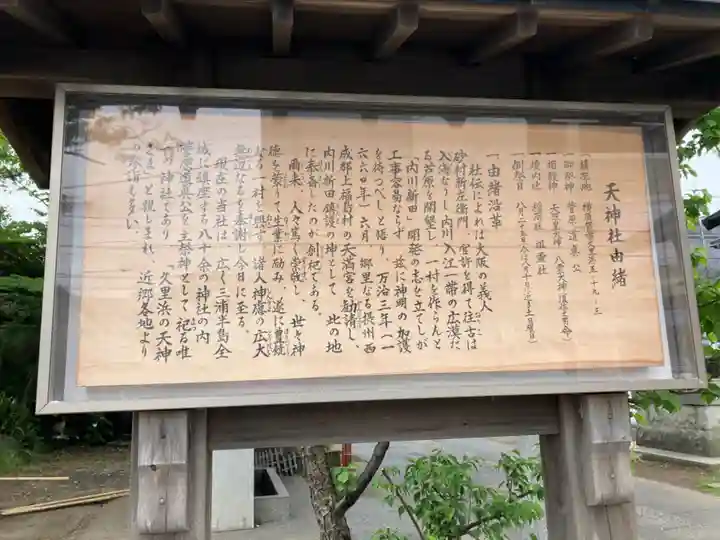 天神社由緒
一 鎮座地 横須賀市久里浜五-十九-三
一 御祭神 菅原道真公
一 相殿神
一 境内社 稲荷社 祖霊社
一 例祭日 八月二十五日
一 由緒沿革
社伝によれば大阪の義人
砂村新左衛門、官許を得て往古は
入海なりし内川入江一帯の広漠た
る芦原を開墾し、一村を作らんと
「内川新田」開発の志を立てしが
工事容易ならず、茲に神明の加護
を待つべしと悟り、万治三年(一
六六〇年)六月、郷里なる摂州西
成郡上福島村の天満宮を勧請し、
内川新田鎮護の神として、此の地
に奉斎したのが創祀である。
爾来、人々篤く崇敬し、世々神
徳を蒙りて生業に励み、遂に豊饒
なる一村を興す。諸人神徳の広大
無辺なるを感謝し今日に至る。
現在の当社は、広く三浦半島全
域に鎮座する八十余の神社の内
菅原道真公を主祭神として祀る唯
一の神社であり、久里浜の天神
さまと親しまれ、近郷各地より
の参詣も多い。